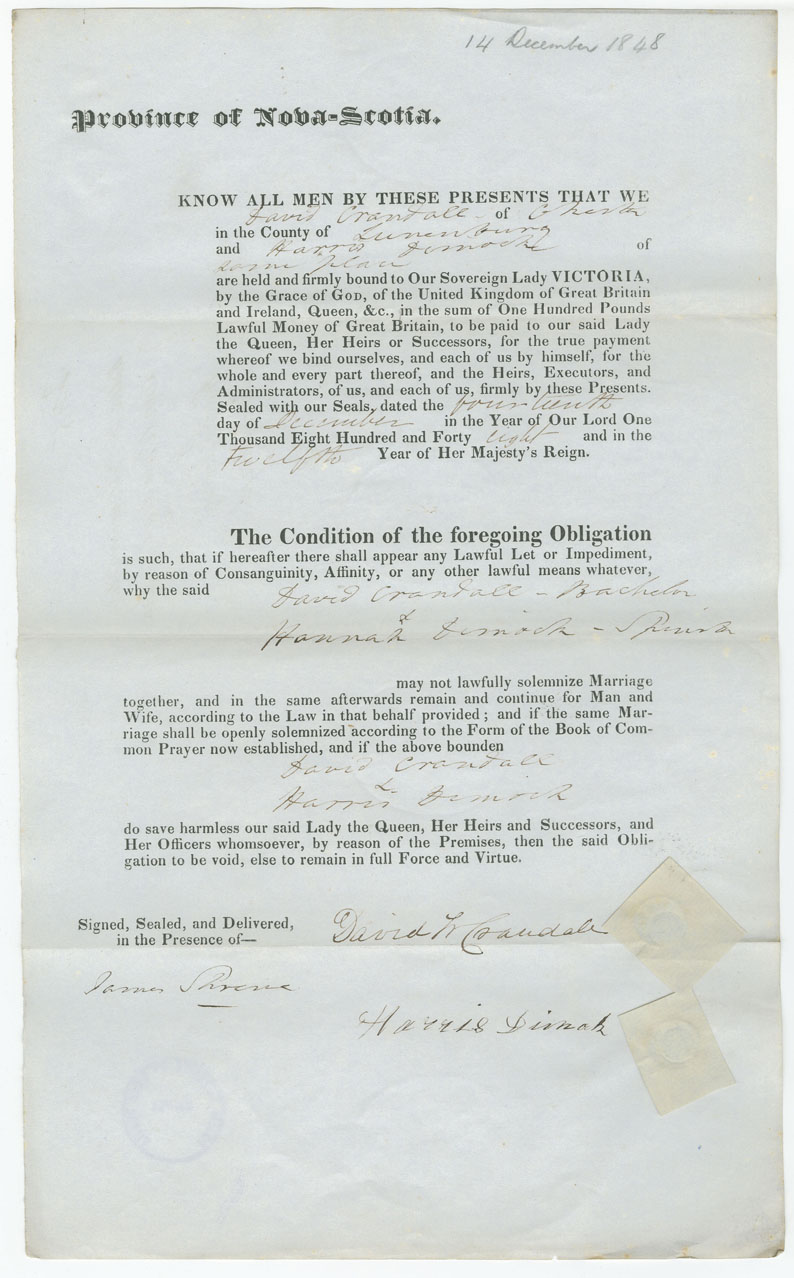 14 December 1848
Province of Nova-Scotia.
KNOW ALL MEN BY THESE PRESENTS THAT WE
David Crandall of Chester
in the County of Lunenburg
and Harris Dimock of
same place
are held and firmly bound to Our Sovereign Lady VICTORIA,
by the Grace of GOD, of the United Kingdom of Great Britain
and Ireland, Queen, &c., in the sum of One Hundred Pounds
Lawful Money of Great Britain, to be paid to our said Lady
the Queen, Her Heirs or Successors, for the true payment
whereof we bind ourselves, and each of us by himself, for the
whole and every part thereof, and the Heirs, Executors, and
Administrators, of us, and each of us, firmly by these Presents.
Sealed with our Seals, dated the fourteenth
day of December in the Year of Our Lord One
Thousand Eight Hundred and Forty eight and in the
Twelfth Year of Her Majesty's Reign.
The Condition of the foregoing Obligation
is such, that if hereafter there shall appear any Lawful Let or Impediment,
by reason of Consanguinity, Affinity, or any other lawful means whatever,
why the said David Crandall - Bachelor
&
Hannah Dimock - Spinster
may not lawfully solemnize Marriage
together, and in the same afterwards remain and continue for Man and
Wife, according to the Law in that behalf provided; and if the same Mar-
riage shall be openly solemnized according to the Form of the Book of Com-
mon Prayer now established, and if the above bounden
David Crandall
&
Harris Dimock
do save harmless our said Lady the Queen, Her Heirs and Successors, and
Her Officers whomsoever, by reason of the Premises, then the said Obli-
gation to be void, else to remain in full Force and Virtue.
Signed, Sealed, and Delivered,
in the Presence of—
David W Crandall
James
Harris Dimock